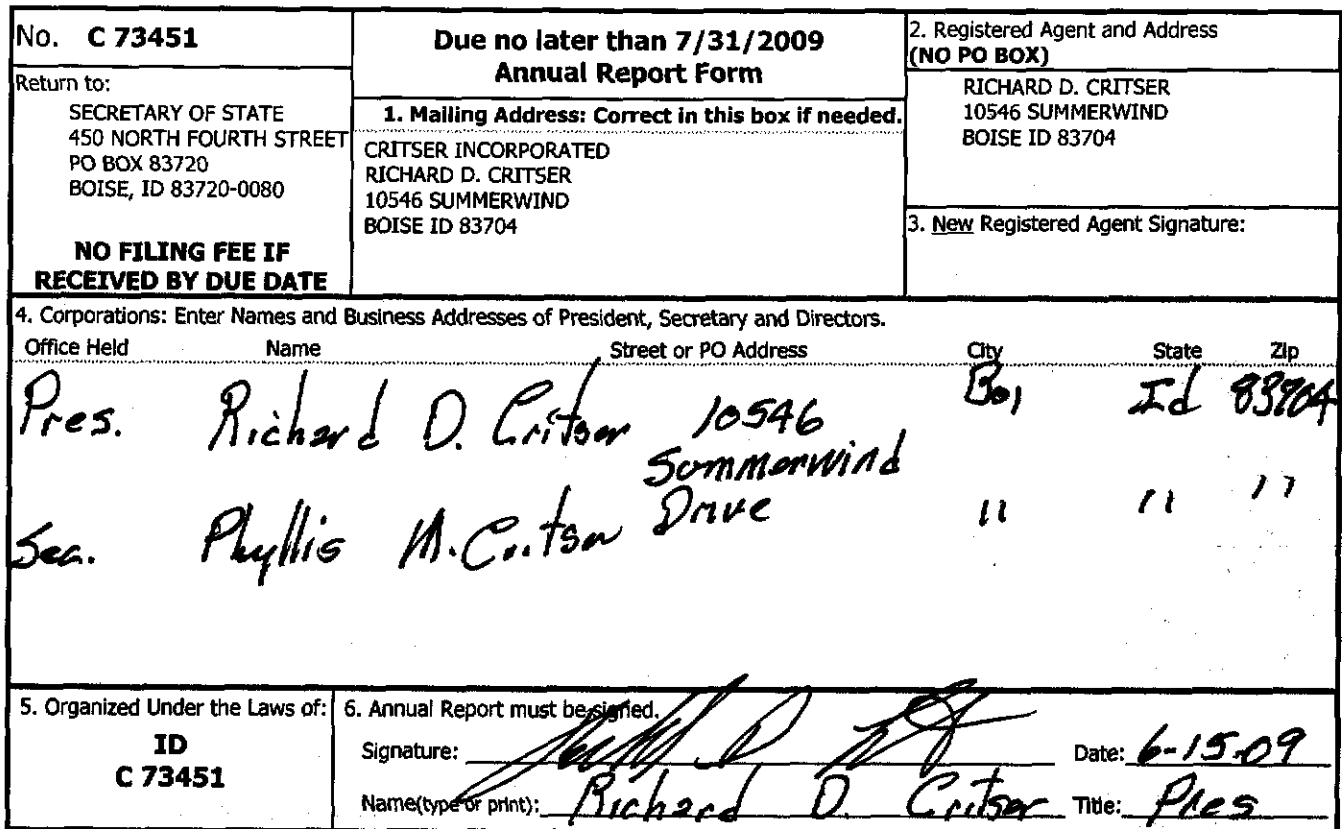 No. C 73451
Return to:
SECRETARY OF STATE
450 NORTH FOURTH STREET
PO BOX 83720
BOISE, ID 83720-0080
NO FILING FEE IF
RECEIVED BY DUE DATE
Due no later than 7/31/2009
Annual Report Form
1. Mailing Address: Correct in this box if needed.
CRITSER INCORPORATED
RICHARD D. CRITSER
10546 SUMMERWIND
BOISE ID 83704
2. Registered Agent and Address
(NO PO BOX)
RICHARD D. CRITSER
10546 SUMMERWIND
BOISE ID 83704
3. New Registered Agent Signature:
4. Corporations: Enter Names and Business Addresses of President, Secretary and Directors.
Office Held Name Street or PO Address City State Zip
Pres. Richard D. Critser 10546 Boi Id 83704
Summerwind
Sec. Phyllis M. Critser Drive " " "
5. Organized Under the Laws of:
ID
C 73451
6. Annual Report must be signed.
Signature: Date: 6-15-09
Name(type or print): Richard D. Critser Title: Pres